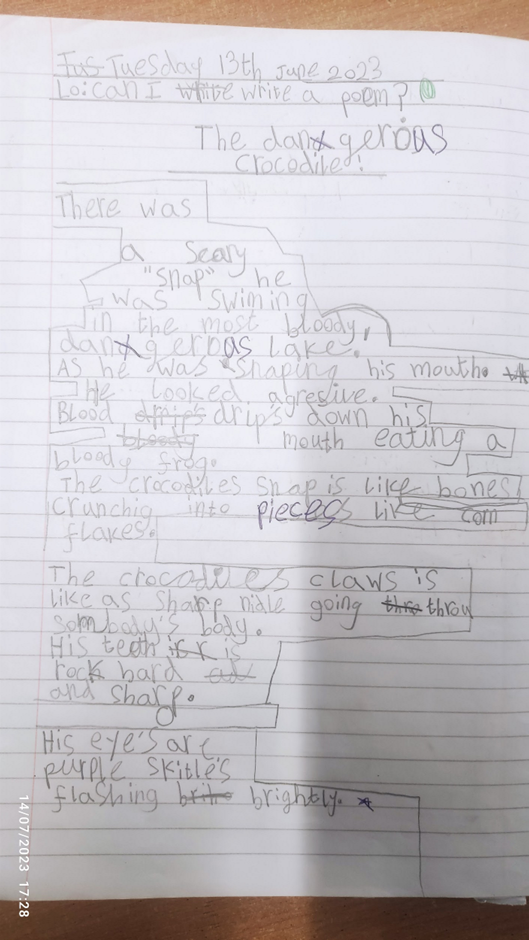 Tus Tuesday 13th June 2023
Lo: can I white write a poem?
The danxgerous
Crocodile!
There was
a scary
"snap" he
was swiming
in the most bloody,
danxgerous Lake.
As he was shaping his mouth.
He looked agresive.
Blood drips drip's down his
bloody mouth eating a
bloody frog.
The crocodiles snap is like bones
crunchig into pieces like corn
flakes.
The crocodiles claws is
like as sharp nidle going thro throu
sombody's body.
His teeth is r is
rock hard ad
and sharp.
His eye's are
purple skitle's
flashing brite brightly.
14/07/2023 17:28